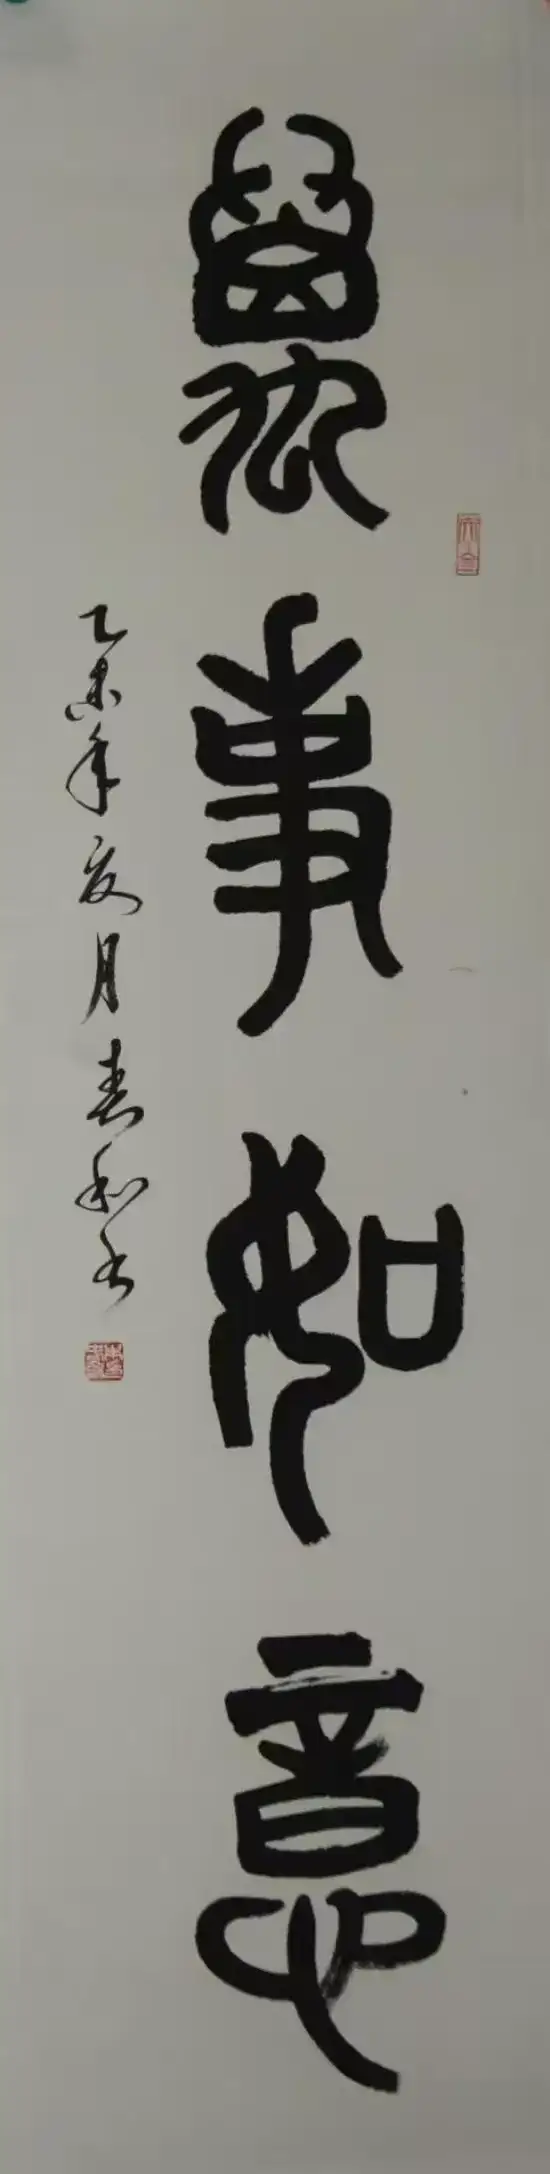 萬事如意
乙未年夏月春和书